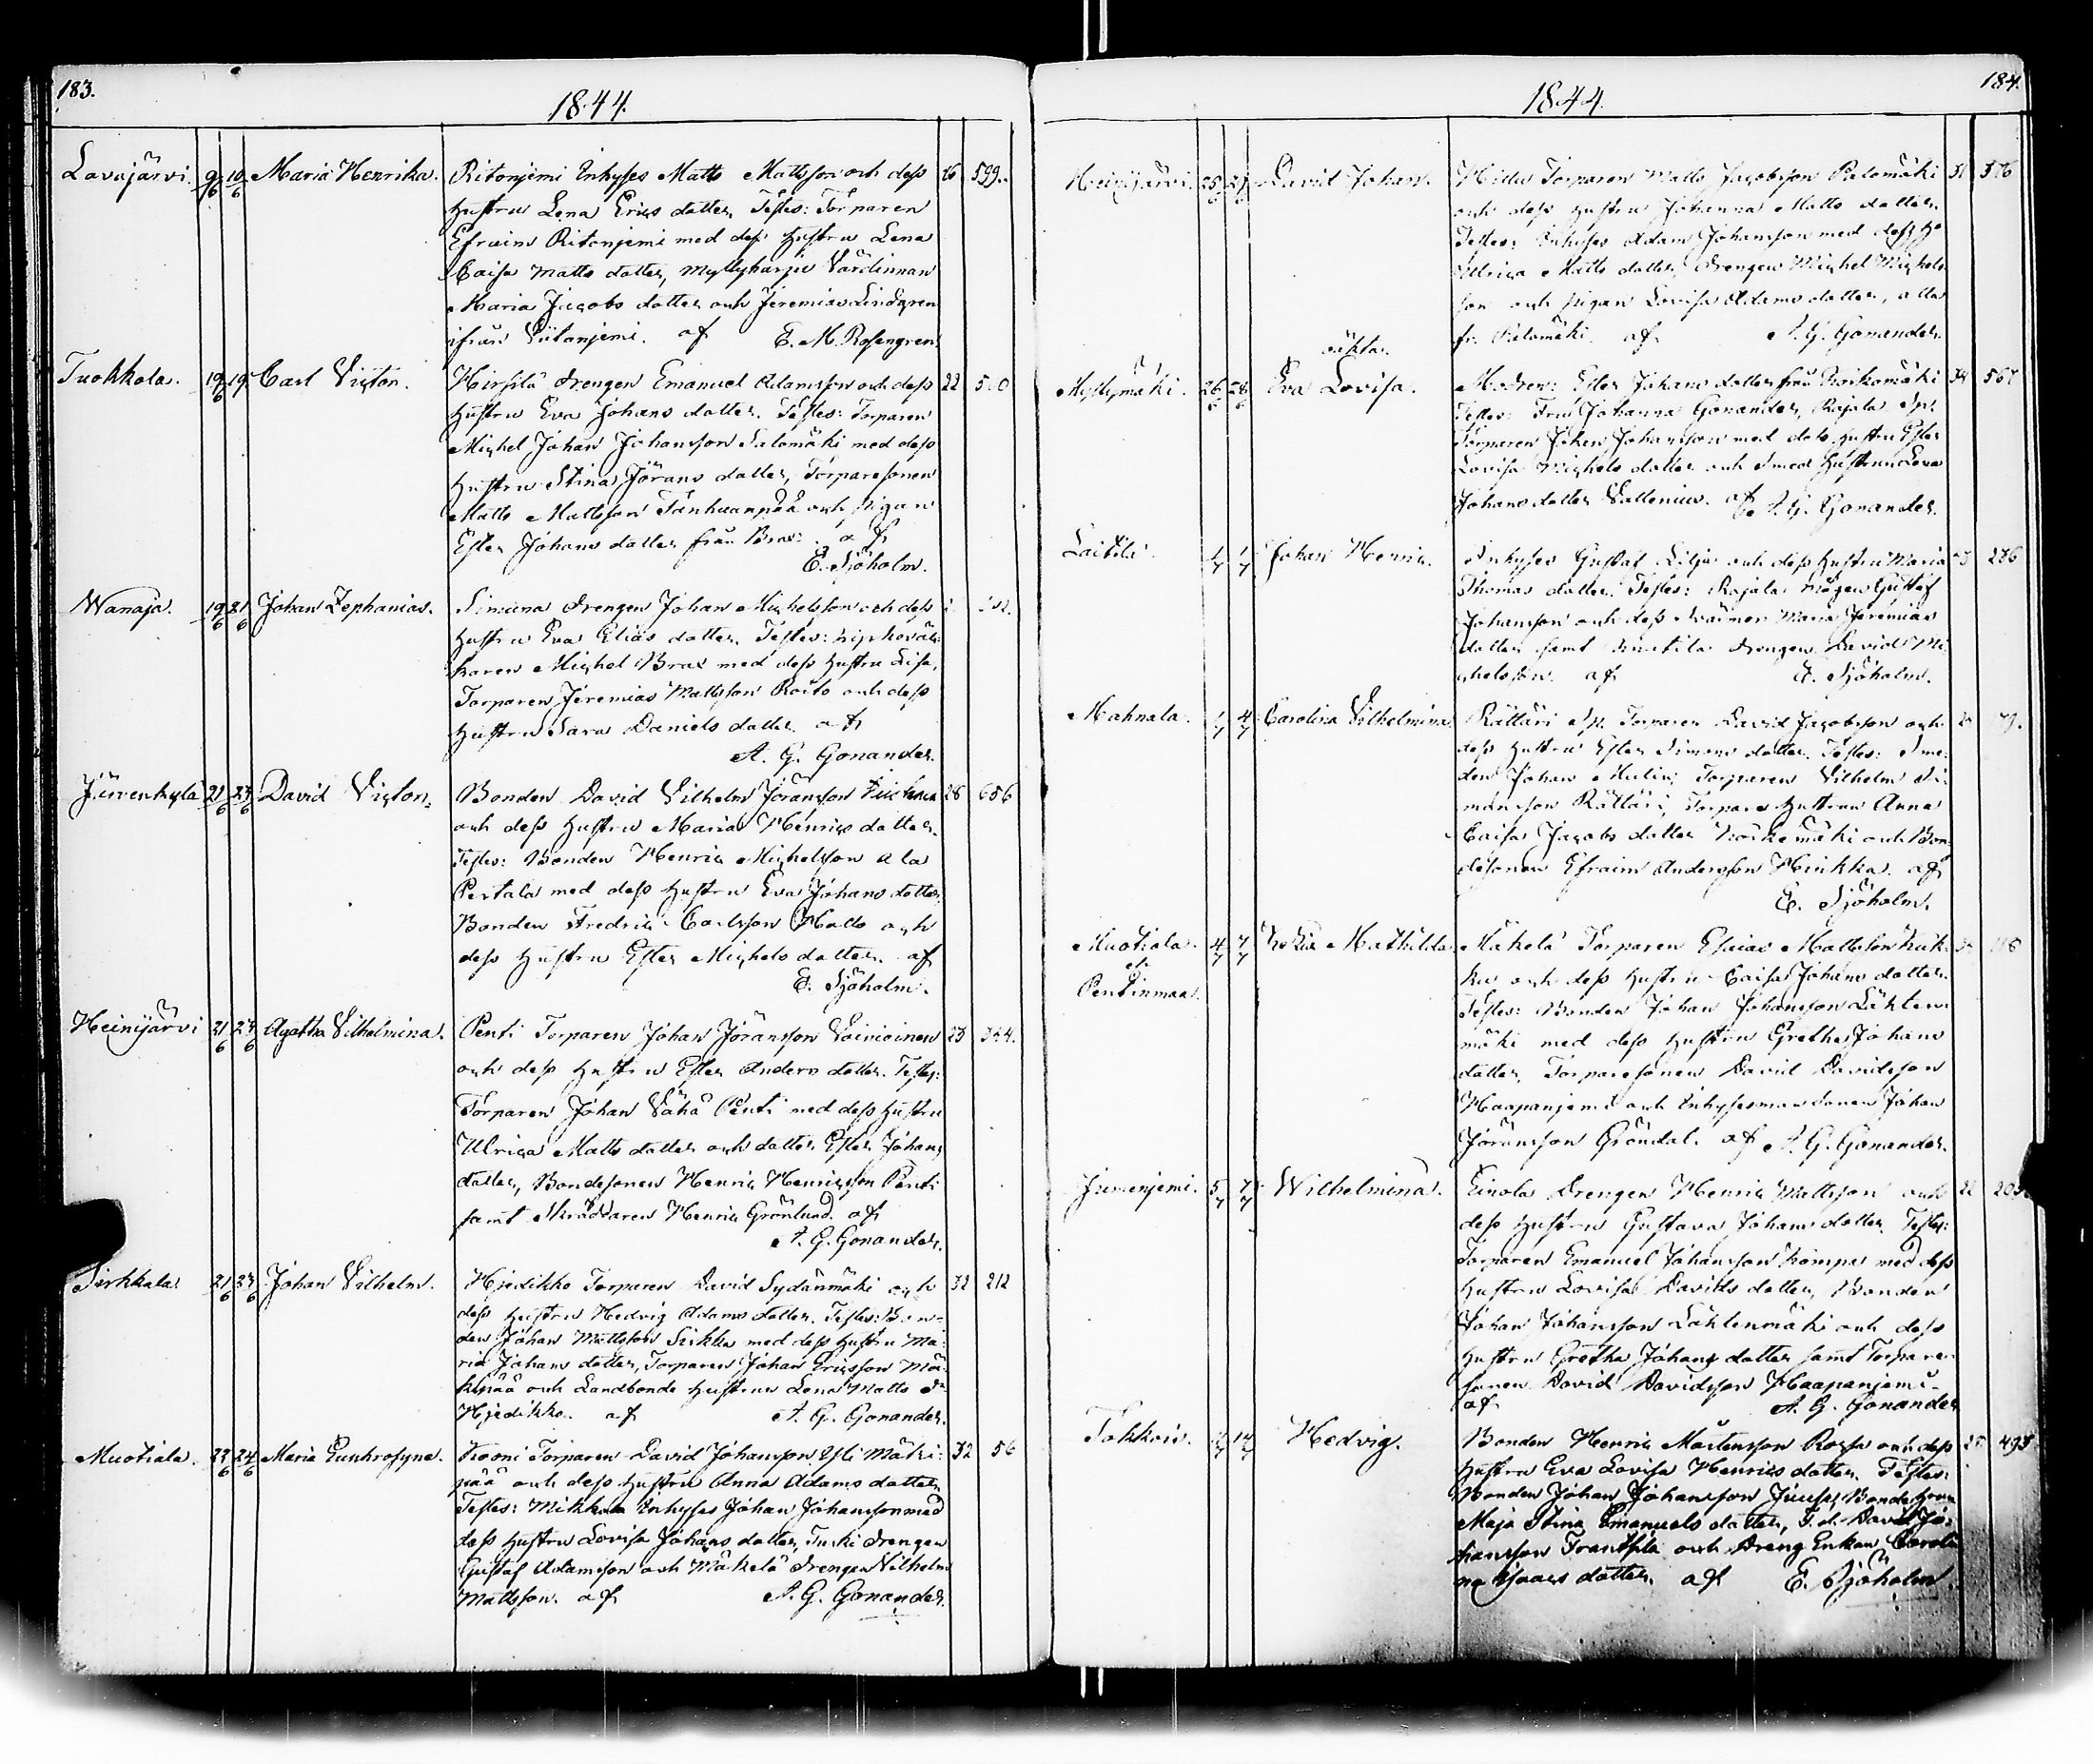 183.
1844.
Lavajärvi. 9/6 10/6 Maria Henrika. Ritonjemi Inhyses Matts Mattsson och dess 26 599.
hustru Lena Erics dotter, Testes: Torparen
Efraim Ritonjemi med dess hustru Lena
Caisa Matts dotter, Myllyharju Värdinnan
Maria Jacobs dotter och Jeremias Lindgren
ifrån Viitanjemi. af E. M. Rosengren.
Tuokkola. 19/6 19/6 Carl Victor. Hirsilä drengen Emanuel Adamsson och dess 22
hustru Eva Johans dotter. Testes: Torparen
Michel Johan Johansson Salomäki med dess
hustru Stina Jörans dotter, Torparesonen
Matts Mattsson Tanhuanpää och pigan
Ester Johans dotter från af
E. Sjöholm.
Wanaja. 19/6 21/6 Johan Zephanias. Simuna drengen Johan Michelsson och dess
hustru Eva Elias dotter. Testes:
Michel Brax med dess hustru Lisa,
Torparen Jeremias Mattsson Roito och dess
hustru Sara Daniels dotter. af
A. G. Gonander.
Järvenkylä 21/6 23/6 David Victor. Bonden David Vilhelm Jöransson 28 656
och dess hustru Maria Henrics dotter.
Testes: Bonden Henric Michelsson Ala
Pertala med dess hustru Eva Johans dotter,
Bonden Fredric Carlsson Matts och
dess hustru Ester Michels dotter. af
E. Sjöholm.
Heinijärvi 21/6 23/6 Agatha Vilhelmina. Penti Torparen Johan Jöransson Voivioinen 23
och dess hustru Ester Anders dotter. Testes:
Torparen Johan Vähä Penti med dess hustru
Ulrica Matts dotter och dotter Ester Johans
dotter, Bondesonen Henric Henricsson Penti
samt Skräddaren Henric Grönlund. af
A. G. Gonander.
Sirkkala. 21/6 23/6 Johan Vilhelm. Hjedikko Torparen David Sydänmäki och 32 212
dess hustru Hedvig Adams dotter. Testes: Bon-
den Johan Mattsson Sirkka med dess hustru Ma-
ria Johans dotter, Torparen Johan Ericsson Mä-
kipää och Landbonde hustrun Lena Matts dr
Hjedikko. af A. G. Gonander.
Muotiala. 22/6 24/6 Maria Eunhrosyne. Krooni Torparen David Johansson Yli Mäki-
32 56
pää och dess hustru Anna Adams dotter.
Testes: Mikkola Inhyses Johan Johansson med
dess hustru Lovisa Johans dotter, Turki drengen
Gustaf Adamsson och Mäkelä drengen Vilhelm
Mattsson. af A. G. Gonander.
184.
1844.
Heinijärvi. 25/6 27/6 David Johan. Torparen Matts Jacobsson Palomäki 31 376
och dess hustru Johanna Matts dotter.
Testes: Inhyses Adam Johansson med dess hu
Ulrica Matts dotter, drengen Michel Michels-
son och pigan Lovisa Adams dotter, alla
fr. Palomäki. af A. G. Gonander.
oäkta.
Myllymäki. 26/6 28/6 Eva Lovisa. Modren: Ester Johans dotter från Koikomäki 34 567
Testes: Fru Johanna Gonander, Rajala Sp.
Torparen Johan Johansson med dess hustru Ester
Lovisa Michels dotter och smed hustrun Lena
Johans dotter Vallenius. af A. G. Gonander.
Laitila. 1/7 1/7 Johan Henric. Inhyses Gustaf Lilja och dess hustru Maria 286
Thomas dotter. Testes: Rajala mågen Gustaf
Johansson och dess Svärmor Maria Jeremias
dotter samt Knutila drengen David Mi-
chelsson. af E. Sjöholm.
Mahnala. 1/7 4/7 Carolina Vilhelmina. Rättäri Sp. Torparen David Jacobsson och
dess hustru Ester Simons dotter. Testes: Sme-
den Johan Mulin, Torparen Vilhelm Si-
monsson Rättäri, Torpare hustrun Anna
Caisa Jacobs dotter och Bon-
desonen Efraim Andersson Heikka. af
E. Sjöholm.
Muotiala 4/7 7/7 Mathilda. Mäkelä Torparen Esaias Mattsson Kuk-
et
ko och dess hustru Caisa Johans dotter.
Pentinmaa.
Testes: Bonden Johan Johansson Lähten-
mäki med dess hustru Gretha Johans
dotter, Torparesonen David Davidsson
Haapanjemi och Inhysesman sonen Johan
Jöransson Gröndal. af A. G. Gonander.
Jumenjemi. 5/7 7/7 Wilhelmina. Einola Drengen Henric Mattsson och 22
dess hustru Gustava Johans dotter. Testes:
Torparen Emanuel Johansson Kömpä med dess
hustru Lovisa Davids dotter, Bonden
Johan Johansson Lähtenmäki och dess
hustru Gretha Johans dotter samt Torpare
sonen David Davidsson Haapanjemi.
af A. G. Gonander
Tokkoi. Hedvig. Bonden Henric Mårtensson Rossa och dess 493
hustru Eva Lovisa Henrics dotter. Testes:
Bonden Johan Johansson Juusi, Bondehustrun
Maja Stina Emanuels dotter, T.d. David Jo-
hansson Franttila och Dreng Enkan Caroli-
na Isaacs dotter. af E. Sjöholm.